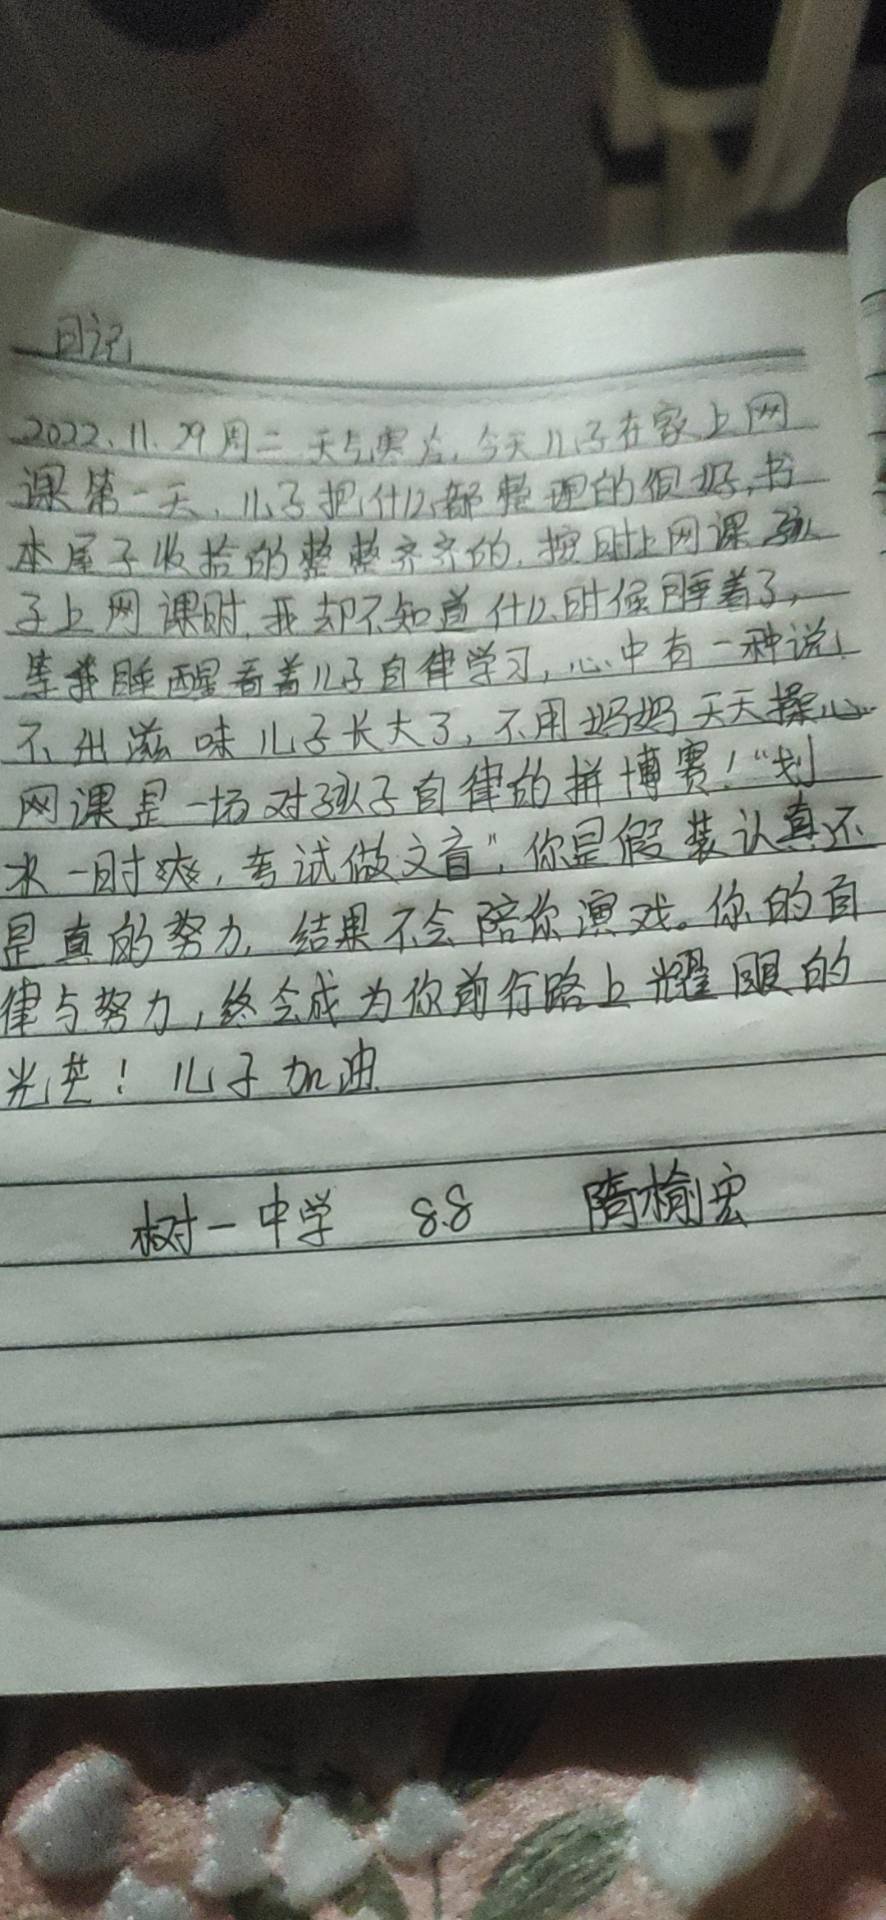 日记
2022、11. 29周二 天气寒冷,今天儿子在家上网
课第一天,儿子把什么都整理的很好,书
本屋子收拾的整整齐齐的,按时上网课孩
子上网课时,我却不知道什么时候睡着了,
等我睡醒看着儿子自律学习,心中有一种说
不出滋味儿子长大了,不用妈妈天天操心
网课是一场对孩子自律的拼博赛!“划
水一时爽,考试做文盲”,你是假装认真还
是真的努力,结果不会陪你演戏。你的自
律与努力,终会成为你前行路上耀眼的
光芒!儿子加油
树一中学 8.8 隋榆宏